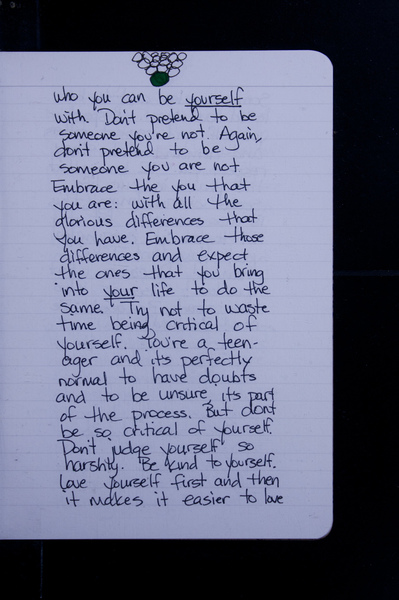 who you can be yourself
with. Don't pretend to be
someone you're not. Again,
don't pretend to be
someone you are not.
Embrace the you that
you are: with all the
glorious differences that
you have. Embrace those
differences and expect
the ones that you bring
into your life to do the
same. Try not to waste
time being critical of
yourself. You're a teen-
ager and it's perfectly
normal to have doubts
and to be unsure, it's part
of the process. But don't
be so critical of yourself.
Don't judge yourself so
harshly. Be kind to yourself.
Love yourself first and then
it makes it easier to love